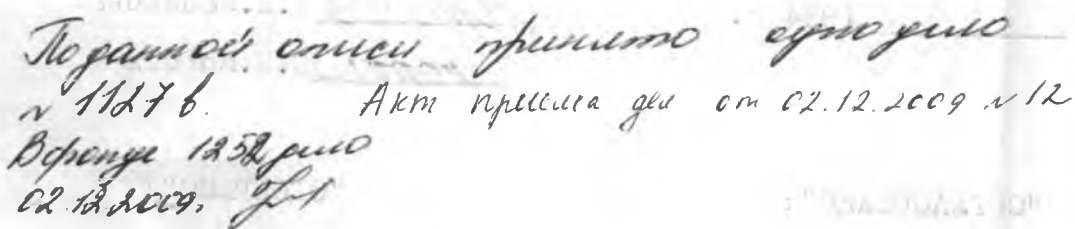 По данной описи принято одно дело
№ 1127 в. Акт приема дел от 02.12.2009 № 12
В фонде 1252 дело
02.12.2009.